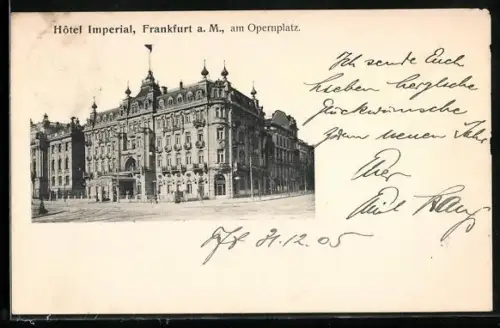 Hôtel Imperial, Frankfurt a. M., am Opernplatz.
Ich sende Euch
lieben herzliche
Glückwünsche
zum neuen Jahr
Euer
Emil
31.12.05